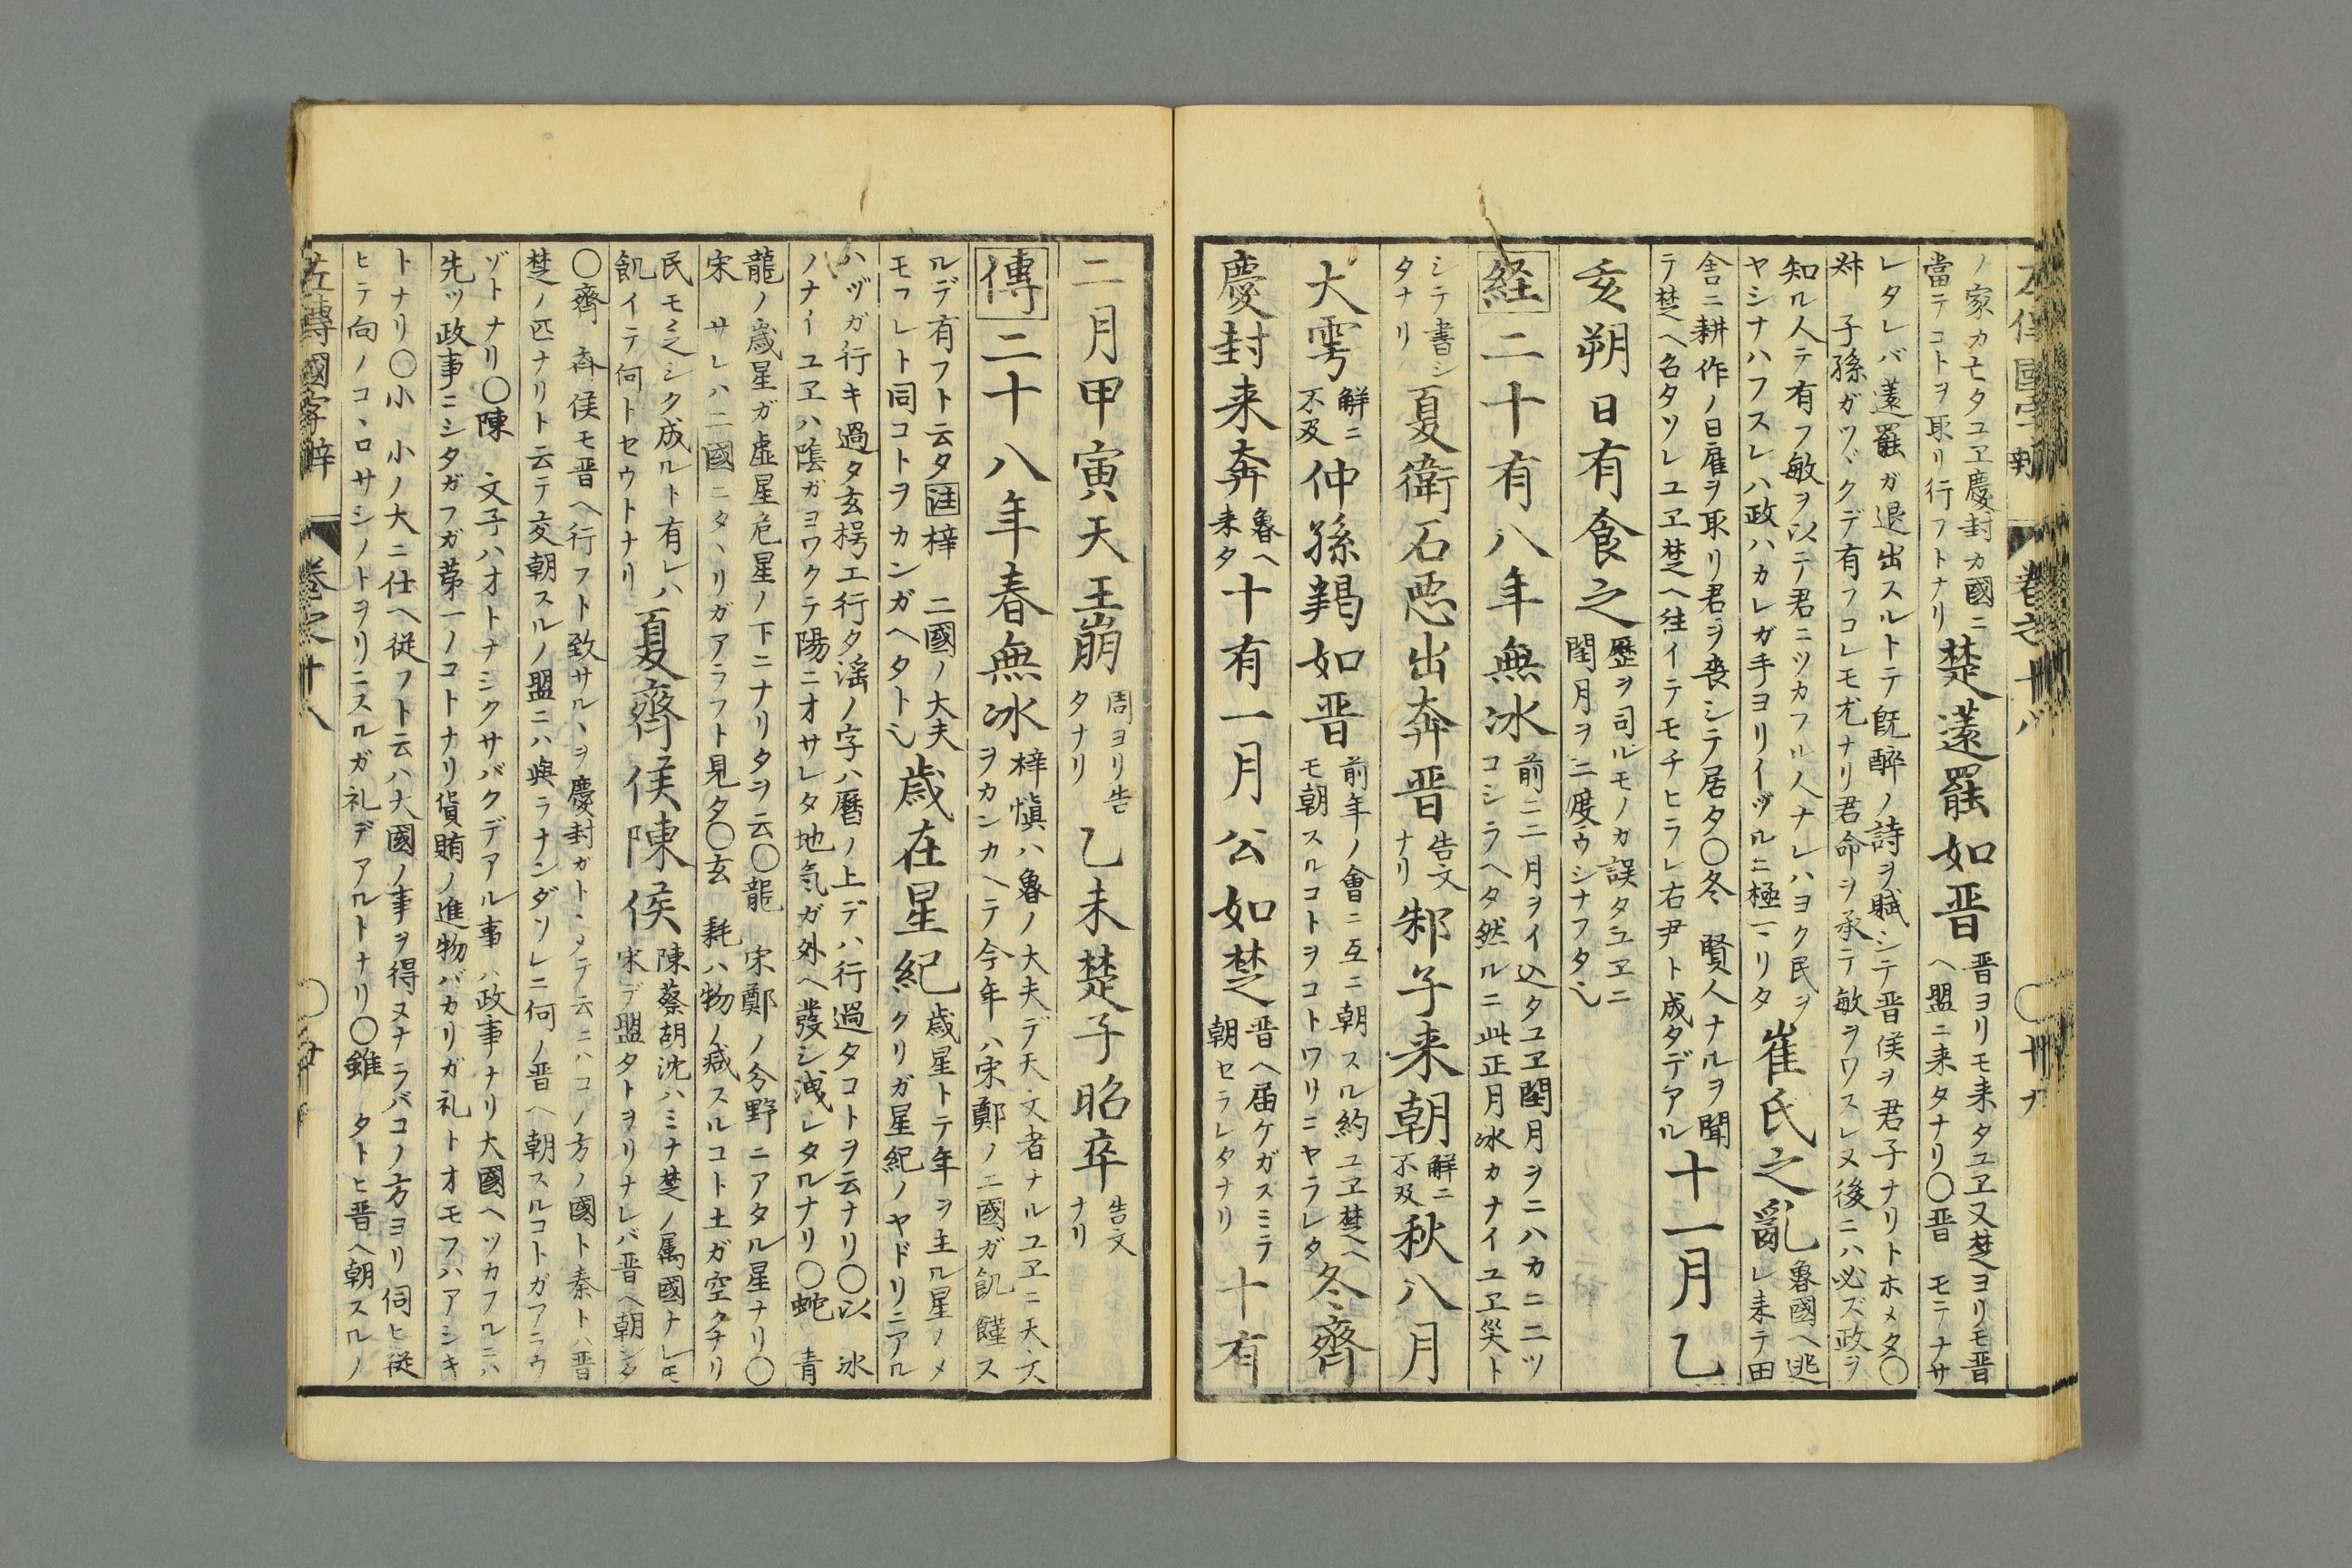 卷之十八
ノ家カ亡タユヱ慶封カ國ニ
當テコトヲ取リ行フトナリ
楚薳罷如晋
晋ヨリモ来タユヱ又楚ヨリモ晋
ヘ盟ニ来タナリ〇晋 モテナサ
レタレバ薳罷ガ退出スルトテ既醉ノ詩ヲ賦シテ晋侯ヲ君子ナリトホメタ〇
子孫ガツヾクデ有フコレモ尤ナリ君命ヲ承テ敏ヲワスレヌ後ニハ必ズ政ヲ
知ル人テ有フ敏ヲ以テ君ニツカフル人ナレハヨク民ヲ
ヤシナハフスレハ政ハカレガ手ヨリイヅルニ極リタ
崔氏之亂
魯國ヘ逃
レ来テ田
舎ニ耕作ノ日雇ヲ取リ君ヲ喪シテ居タ〇冬 賢人ナルヲ聞
テ楚ヘ名タソレユヱ楚ヘ往イテモチヒラレ右尹ト成タデアル
十一月乙
亥朔日有食之
歷ヲ司ルモノカ誤タユヱニ
閏月ヲ二度ウシナフタ
経二十有八年無冰
前ニ二月ヲイ込タユヱ閏月ヲニハカニ二ツ
コシラヘタ然ルニ此正月冰カナイユヱ災ト
シテ書シ
タナリ
夏衛石悪出奔晋
告文
ナリ
邾子来朝
解ニ
不及
秋八月
大雩
解ニ
不及
仲孫羯如晋
前年ノ會ニ互ニ朝スル約ユヱ楚ヘ
モ朝スルコトヲコトワリニヤラレタ
冬齊
慶封来奔
魯ヘ
来タ
十有一月公如楚
晋ヘ届ケガスミテ
朝セラレタナリ
十有
二月甲寅天王崩
周ヨリ告
タナリ
乙未楚子昭卒
告文
ナリ
傳二十八年春無冰
梓愼ハ魯ノ大夫テ天文者ナルユヱニ天文
ヲカンカヘテ今年ハ宋鄭ノ二國ガ飢饉ス
ルデ有フト云タ注梓 二國ノ大夫
モフレト同コトヲカンガヘタト
歳在星紀
歳星トテ年ヲ主ル星ノメ
クリガ星紀ノヤドリニアル
ハヅガ行キ過タ玄枵エ行タ滛ノ字ハ曆ノ上デハ行過タコトヲ云ナリ〇以 冰
ノナイユヱハ陰ガヨワクテ陽ニオサレタ地気ガ外ヘ發シ洩レタルナリ〇蛇 青
龍ノ歳星ガ虚星危星ノ下ニナリタヲ云〇龍 宋鄭ノ分野ニアタル星ナリ〇
宋 サレハ二國ニタヽリガアラフト見タ〇玄 耗ハ物ノ减スルコト土ガ空クナリ
民モ乏シク成ルト有レハ
飢イテ何トセウトナリ
夏齊侯陳侯
陳蔡胡沈ハミナ楚ノ属國ナレモ
宋デ盟タトヲリナレバ晋ヘ朝シタ
〇齊 斉侯モ晋ヘ行フト致サルヽヲ慶封ガトヽメテ云ニハコノ方ノ國ト秦トハ晋
楚ノ匹ナリト云テ交朝スルノ盟ニハ與ラナンダソレニ何ノ晋ヘ朝スルコトガアラウ
ゾトナリ〇陳 文子ハオトナシクサバクデアル事ハ政事ナリ大國ヘツカフルニハ
先ツ政事ニシタガフガ苐一ノコトナリ貨賄ノ進物バカリガ礼トオモフハアシキ
トナリ〇小 小ノ大ニ仕ヘ従フト云ハ大國ノ事ヲ得ヌナラバコノ方ヨリ伺ヒ従
ヒテ向ノコヽロサシノトヲリニスルガ礼デアルトナリ〇雖 タトヒ晋ヘ朝スルノ
左傳國字辨 卷之十八